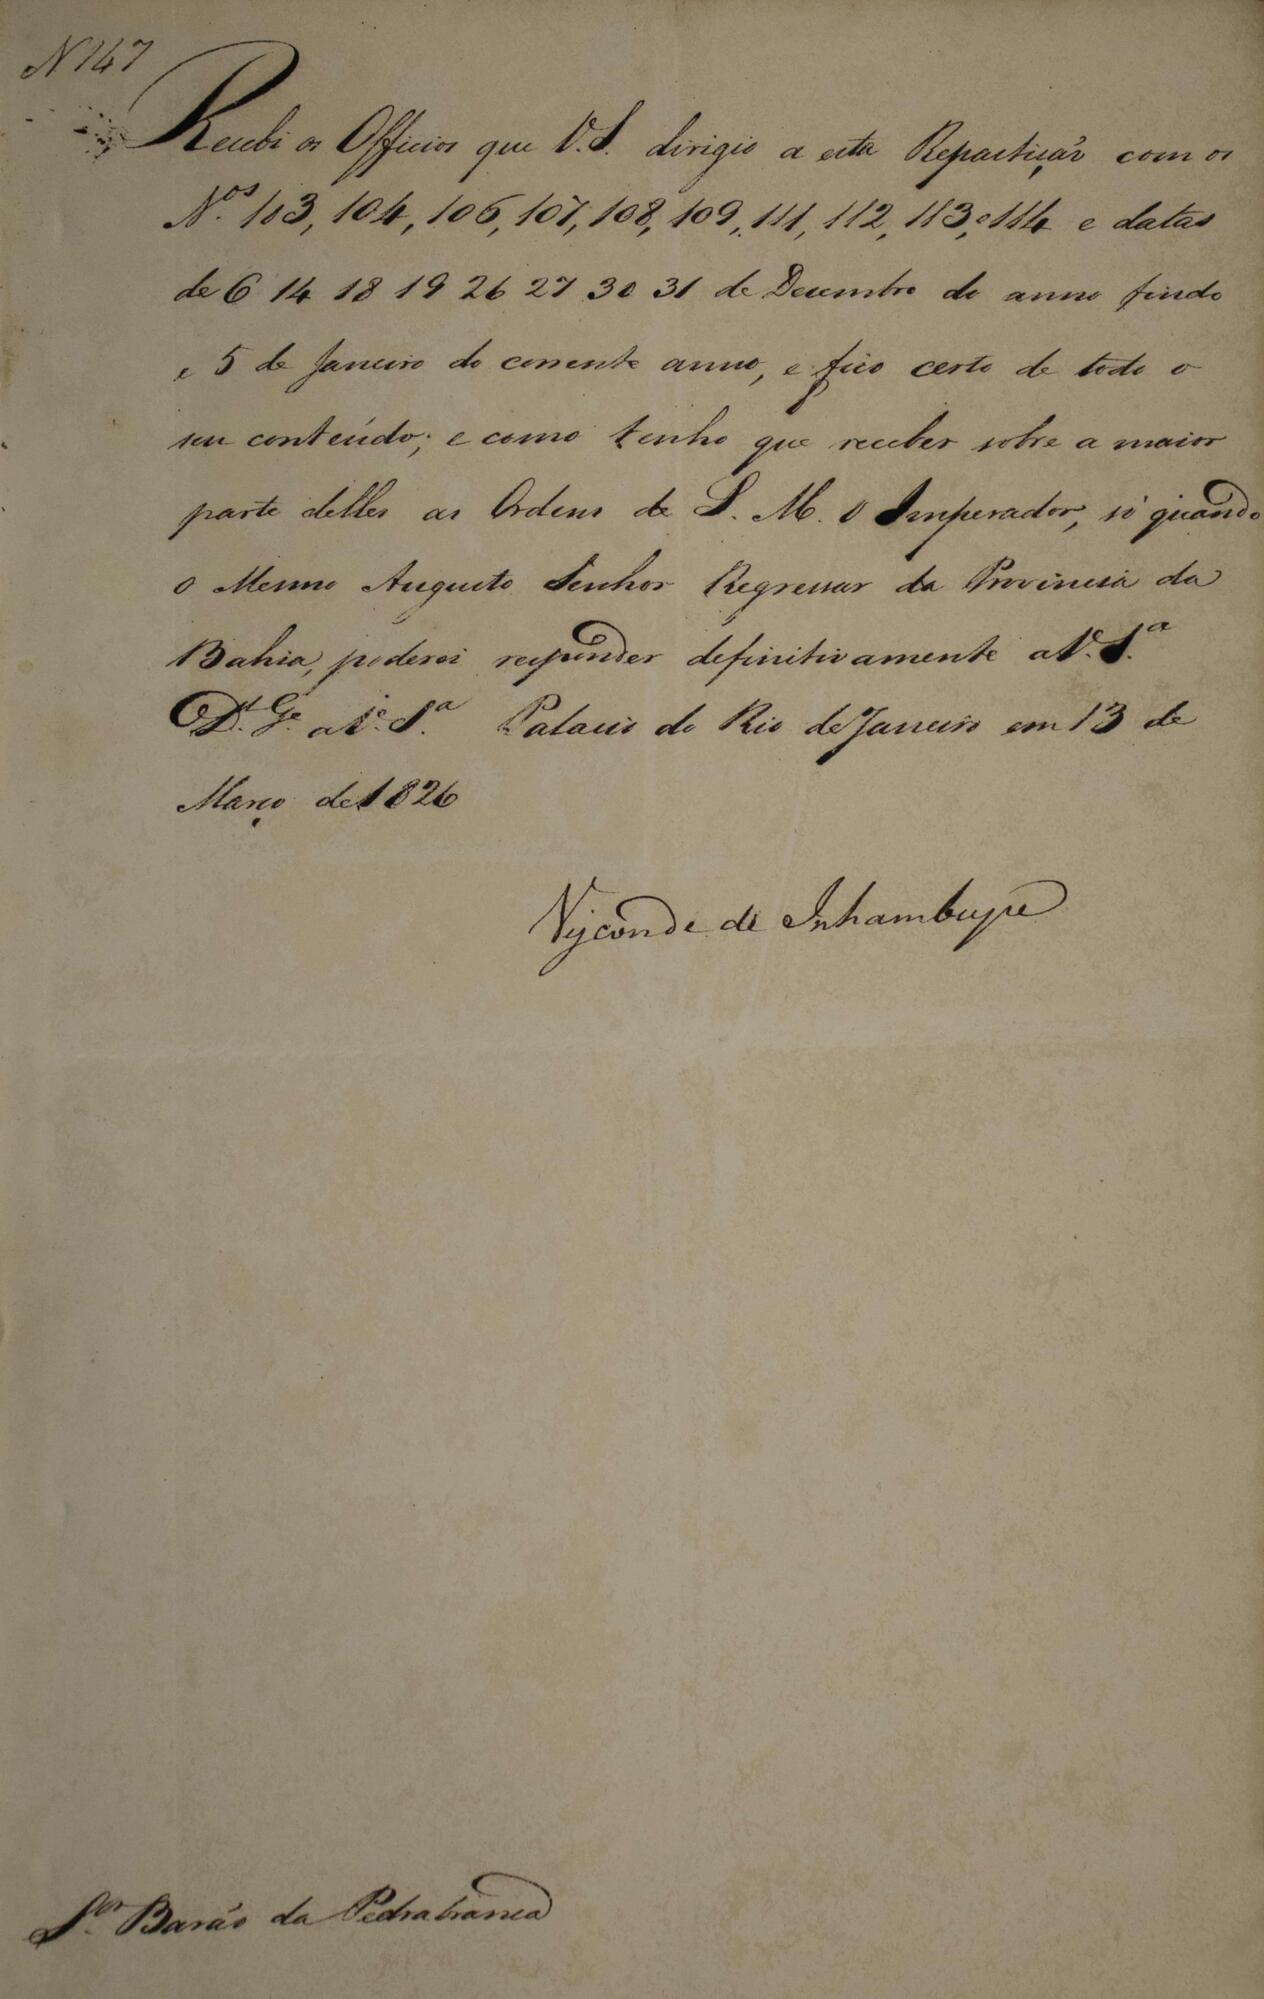 N 147
Recebi os Officios que V. S. dirigio a esta Repartição com os
N.os 103, 104, 106, 107, 108, 109, 111, 112, 113, e 114 e datas
de 6 14 18 19 26 27 30 31 de Dezembro do anno findo
e 5 de Janeiro do corrente anno, e fico certo de todo o
seu conteúdo; e como tenho que receber sobre a maior
parte delles as Ordens de S. M. O Imperador, só quando
o Mesmo Augusto Senhor Regressar da Provincia da
Bahia, poderei responder definitivamente a V. S.a
D.s G.e a V. S.a Palacio do Rio de Janeiro em 13 de
Março de 1826
Visconde de Inhambupe
S.or Barão da Pedrabranca